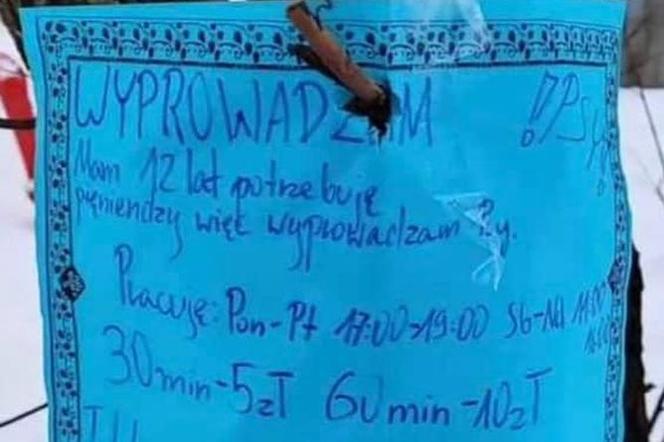 WYPROWADZAM !PSY!
Mam 12 lat potrzebuję
pięniendzy więc wyprowadzam Psy.
Pracuję: Pon-Pt 17:00-19:00 Sb-Nd 11:00
30min-5zł 60min-10zł